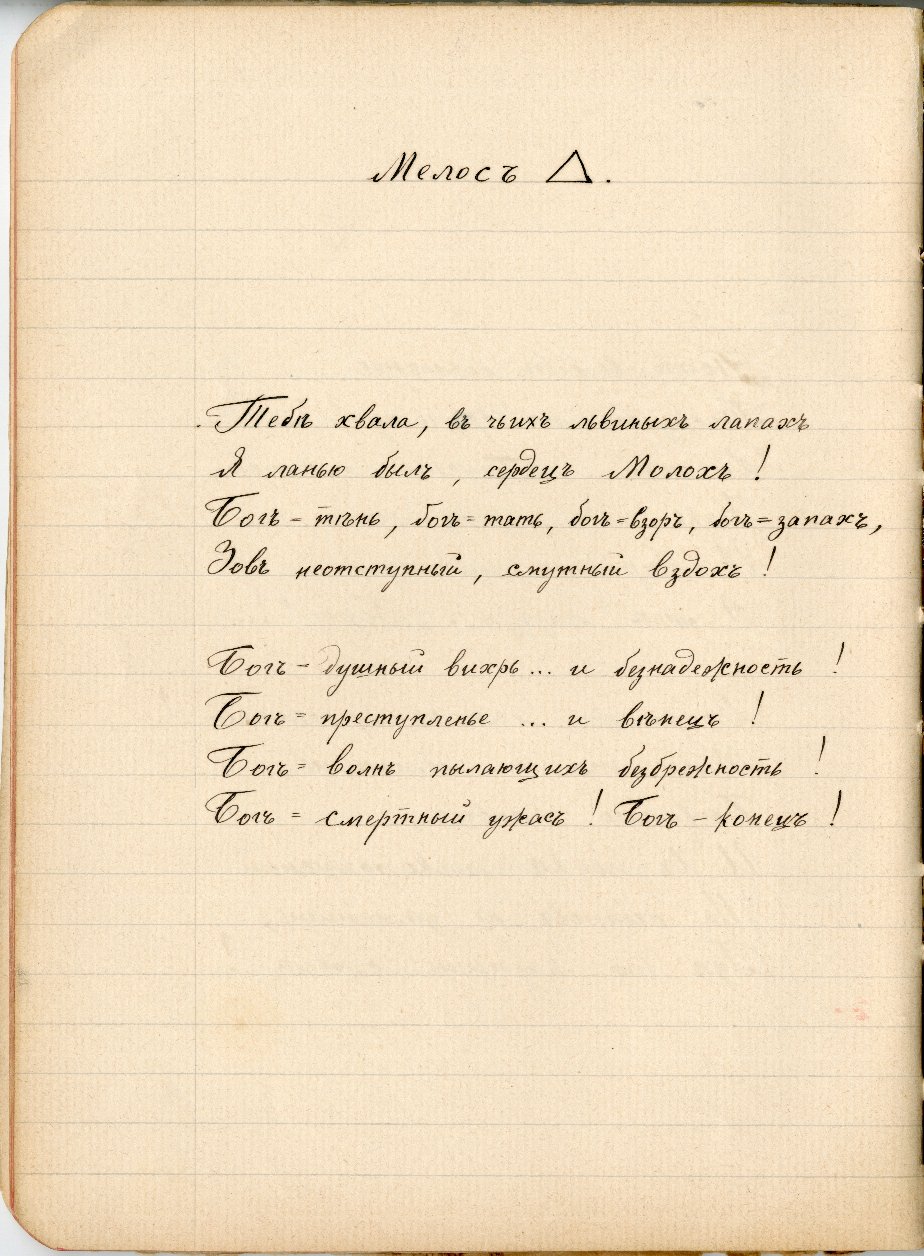 Мелосъ Δ.
Тебѣ хвала, въ чьихъ львиныхъ лапахъ
Я ланью былъ, сердецъ Молохъ!
Богъ = тѣнь, богъ = тать, богъ = взоръ, богъ = запахъ,
Зовъ неотступный, смутный вздохъ!
Богъ – душный вихрь ... и безнадежность!
Богъ = преступленье ... и вѣнецъ!
Богъ = волнъ пылающихъ безбрежность!
Богъ = смертный ужасъ! Богъ – конецъ!